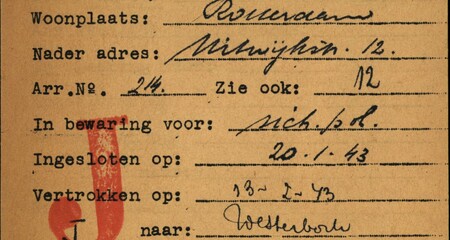 Woonplaats: Rotterdam
Nader adres: 12.
Arr.No. 214. Zie ook: 12
In bewaring voor: sich. pol.
Ingesloten op: 20.1.43
Vertrokken op: 13-2-43
J naar: Westerbork